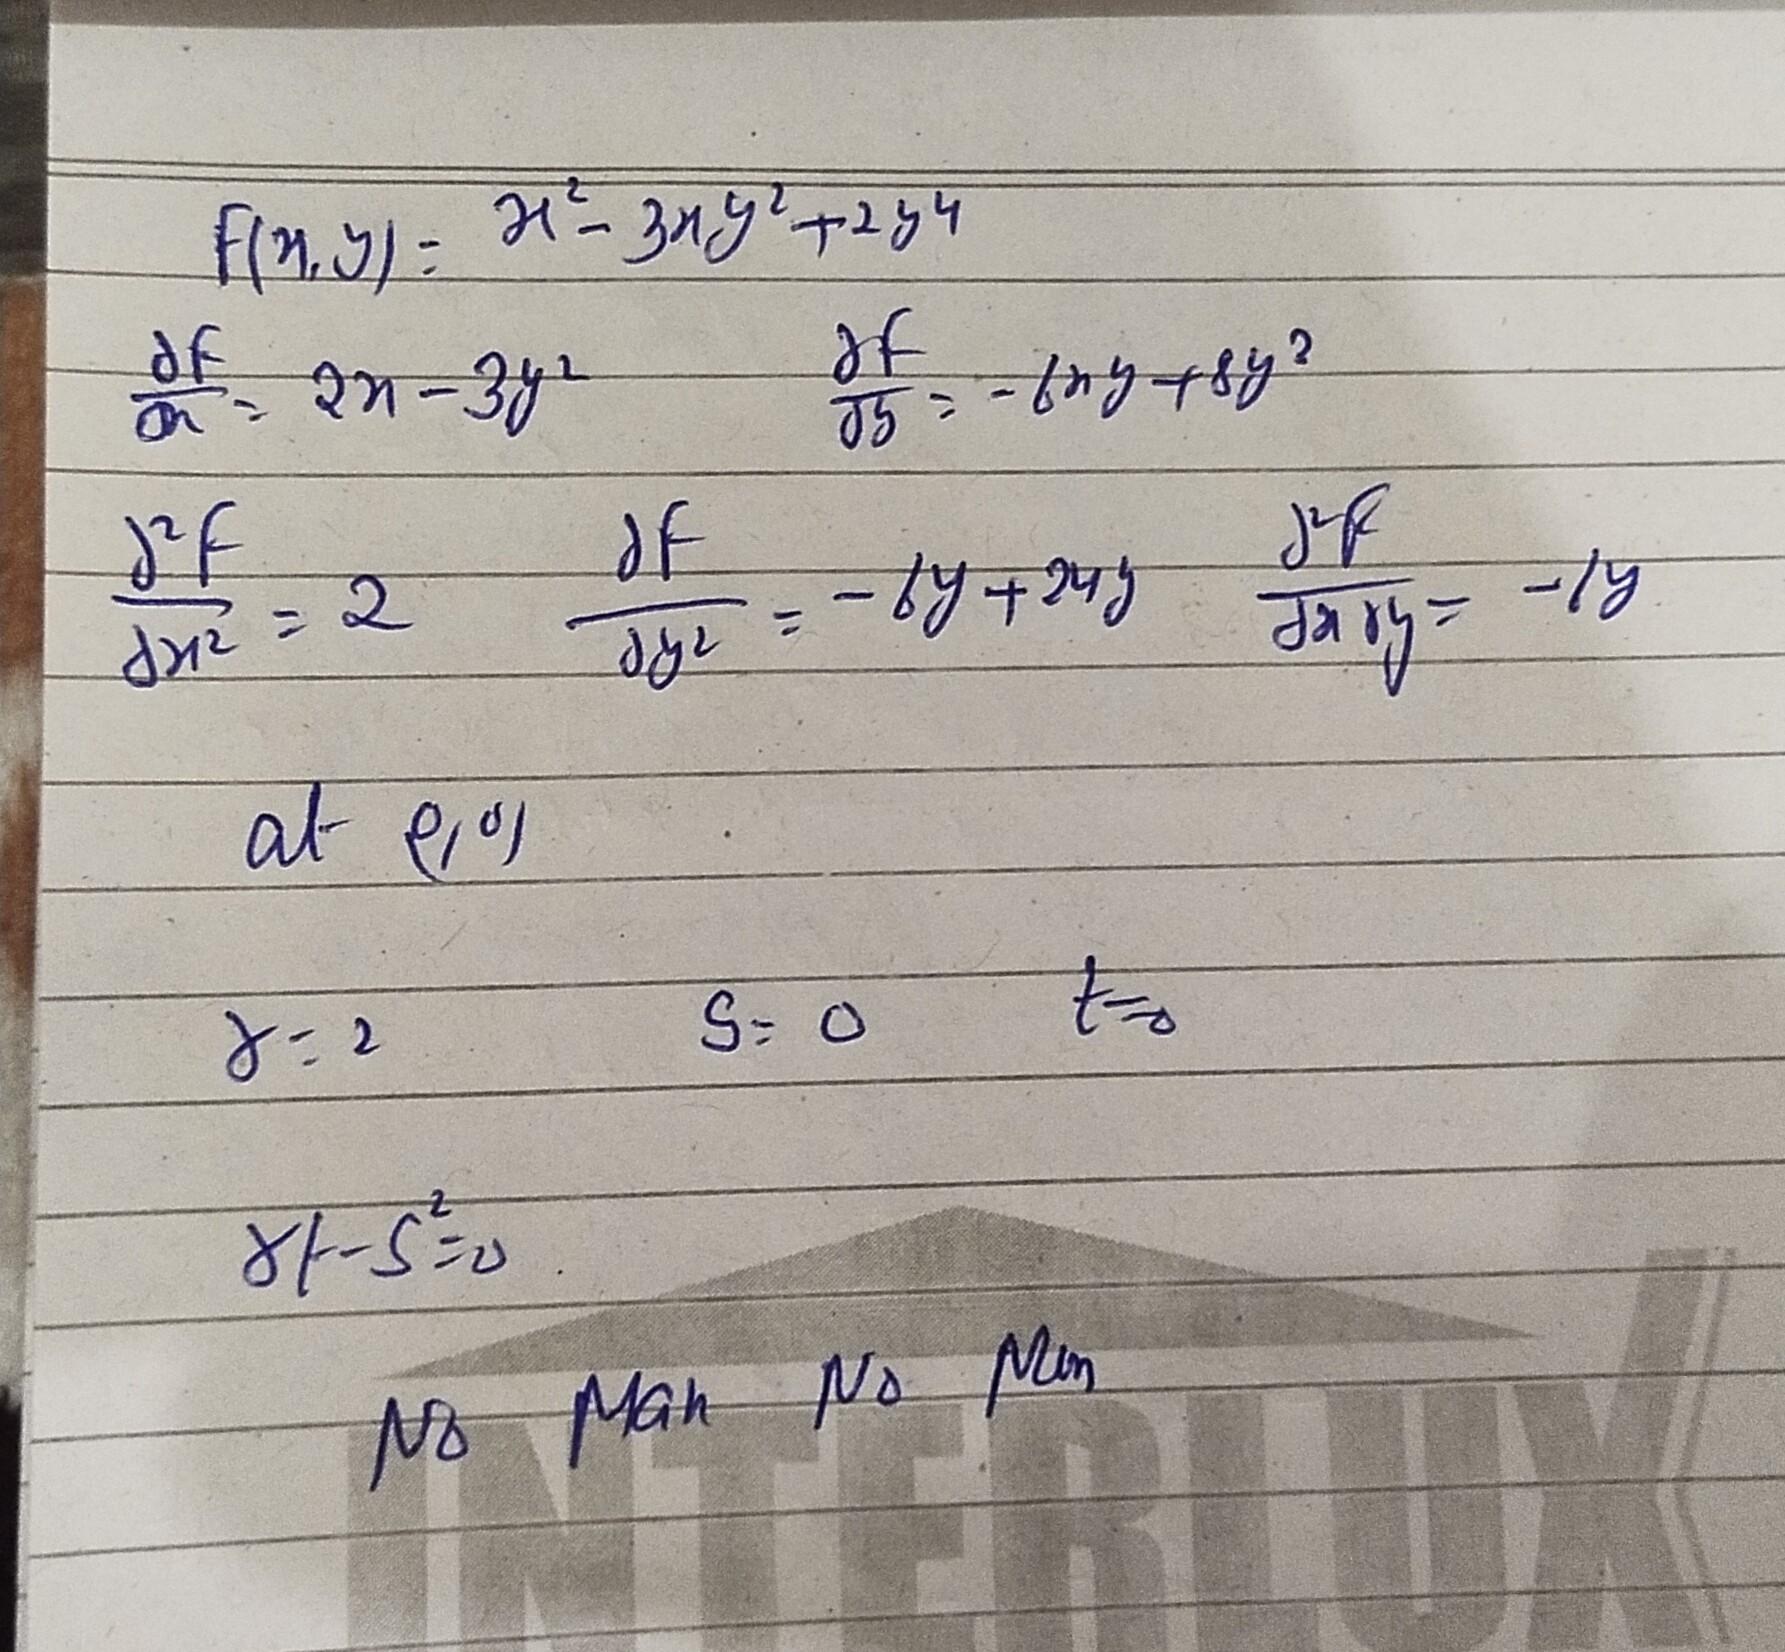 F(x,y) = x² - 3xy² + 2y4
∂F/∂x = 2x - 3y² ∂F/∂y = -6xy + 8y³
∂²F/∂x² = 2 ∂F/∂y² = -6y + 24y ∂²F/∂x∂y = -6y
at (0,0)
r = 2 S = 0 t = 0
rt - S² = 0
No Max No Min
INTERLUX